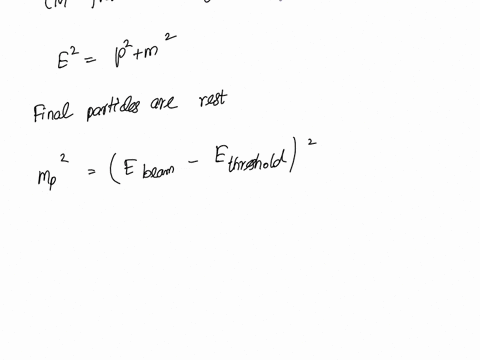 E² = p² + m²
Final particles are rest
mp² = (E beam − E threshold)²